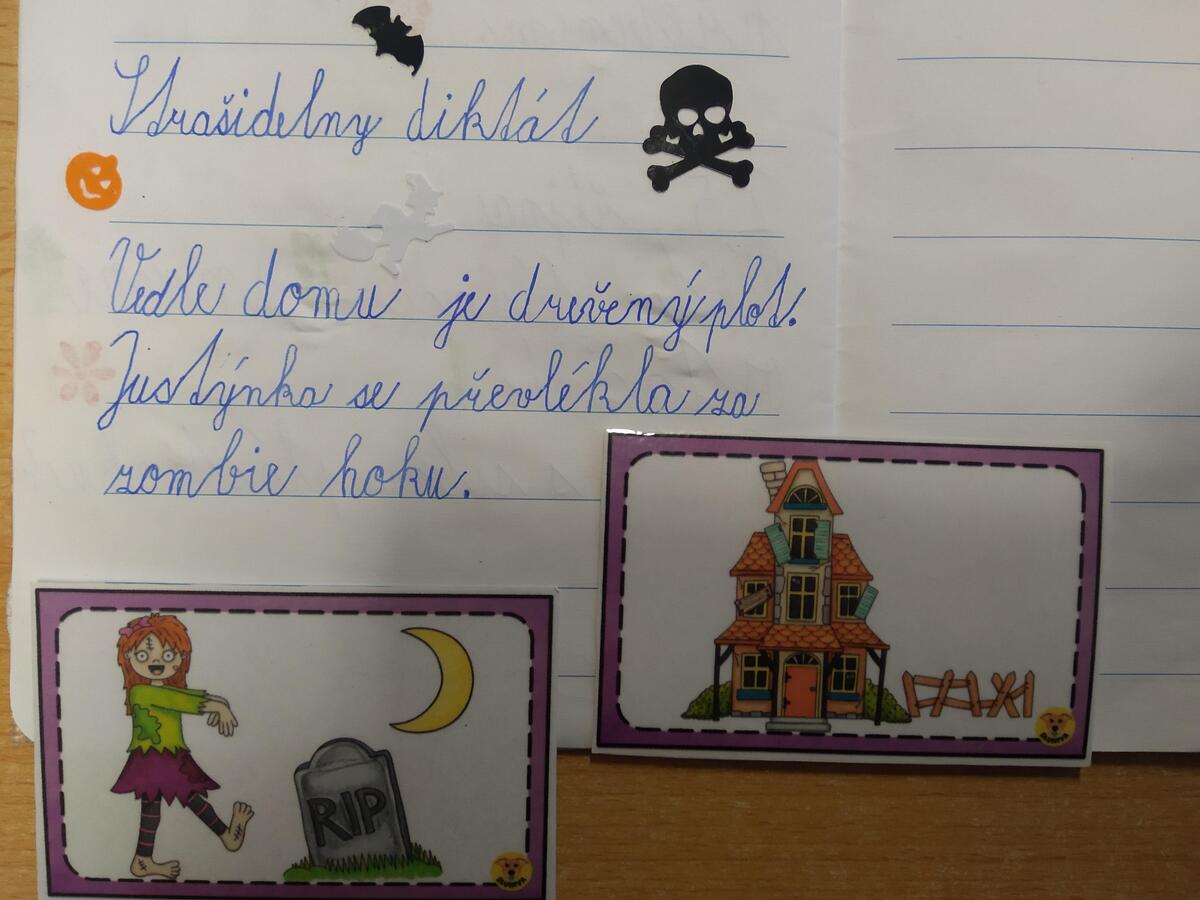 Strašidelny diktát
Vedle domu je dřevěný plot.
Justýnka se převlékla za
zombie hoku.
RIP